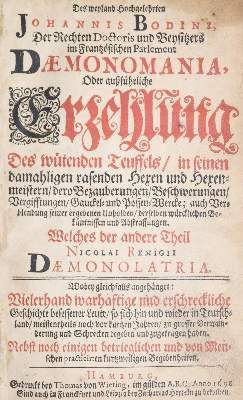 Des weyland Hochgelehrten
JOHANNIS BODINI,
Der Rechten Doctoris und Beysitzers
im Frantzösischen Parlement
DÆMONOMANIA,
Oder außführliche
Erzehlung
Des wütenden Teuffels/ in seinen
damahligen rasenden Hexen und Hexen-
meistern/ dero Bezauberungen/ Beschwerungen/
Vergifftungen/ Gauckel- und Possen-Wercke; auch Ver-
blendung seiner ergebenen Unholden/ derselben würcklichen Be-
käntnissen und Abstraffungen.
Welches der andere Theil
NICOLAI REMIGII
DÆMONOLATRIA.
Wobey gleichfalls angehänget:
Vielerhand warhaftige und erschreckliche
Geschichte besessener Leute/ so sich hin und wieder in Teutsch-
land/ meistentheils noch vor kurtzen Jahren/ zu grosser Verwun-
derung und Schrecken zugetragen haben.
Nebst noch einigen betrieglichen und von Men-
schen practicirten kurtzweiligen Begebenheiten.
HAMBURG,
Gedruckt bey Thomas von Wiering, im gülden A.B.C. Anno 1698
Sind auch in Franckfurt und Leipzig bey zu bekommen.